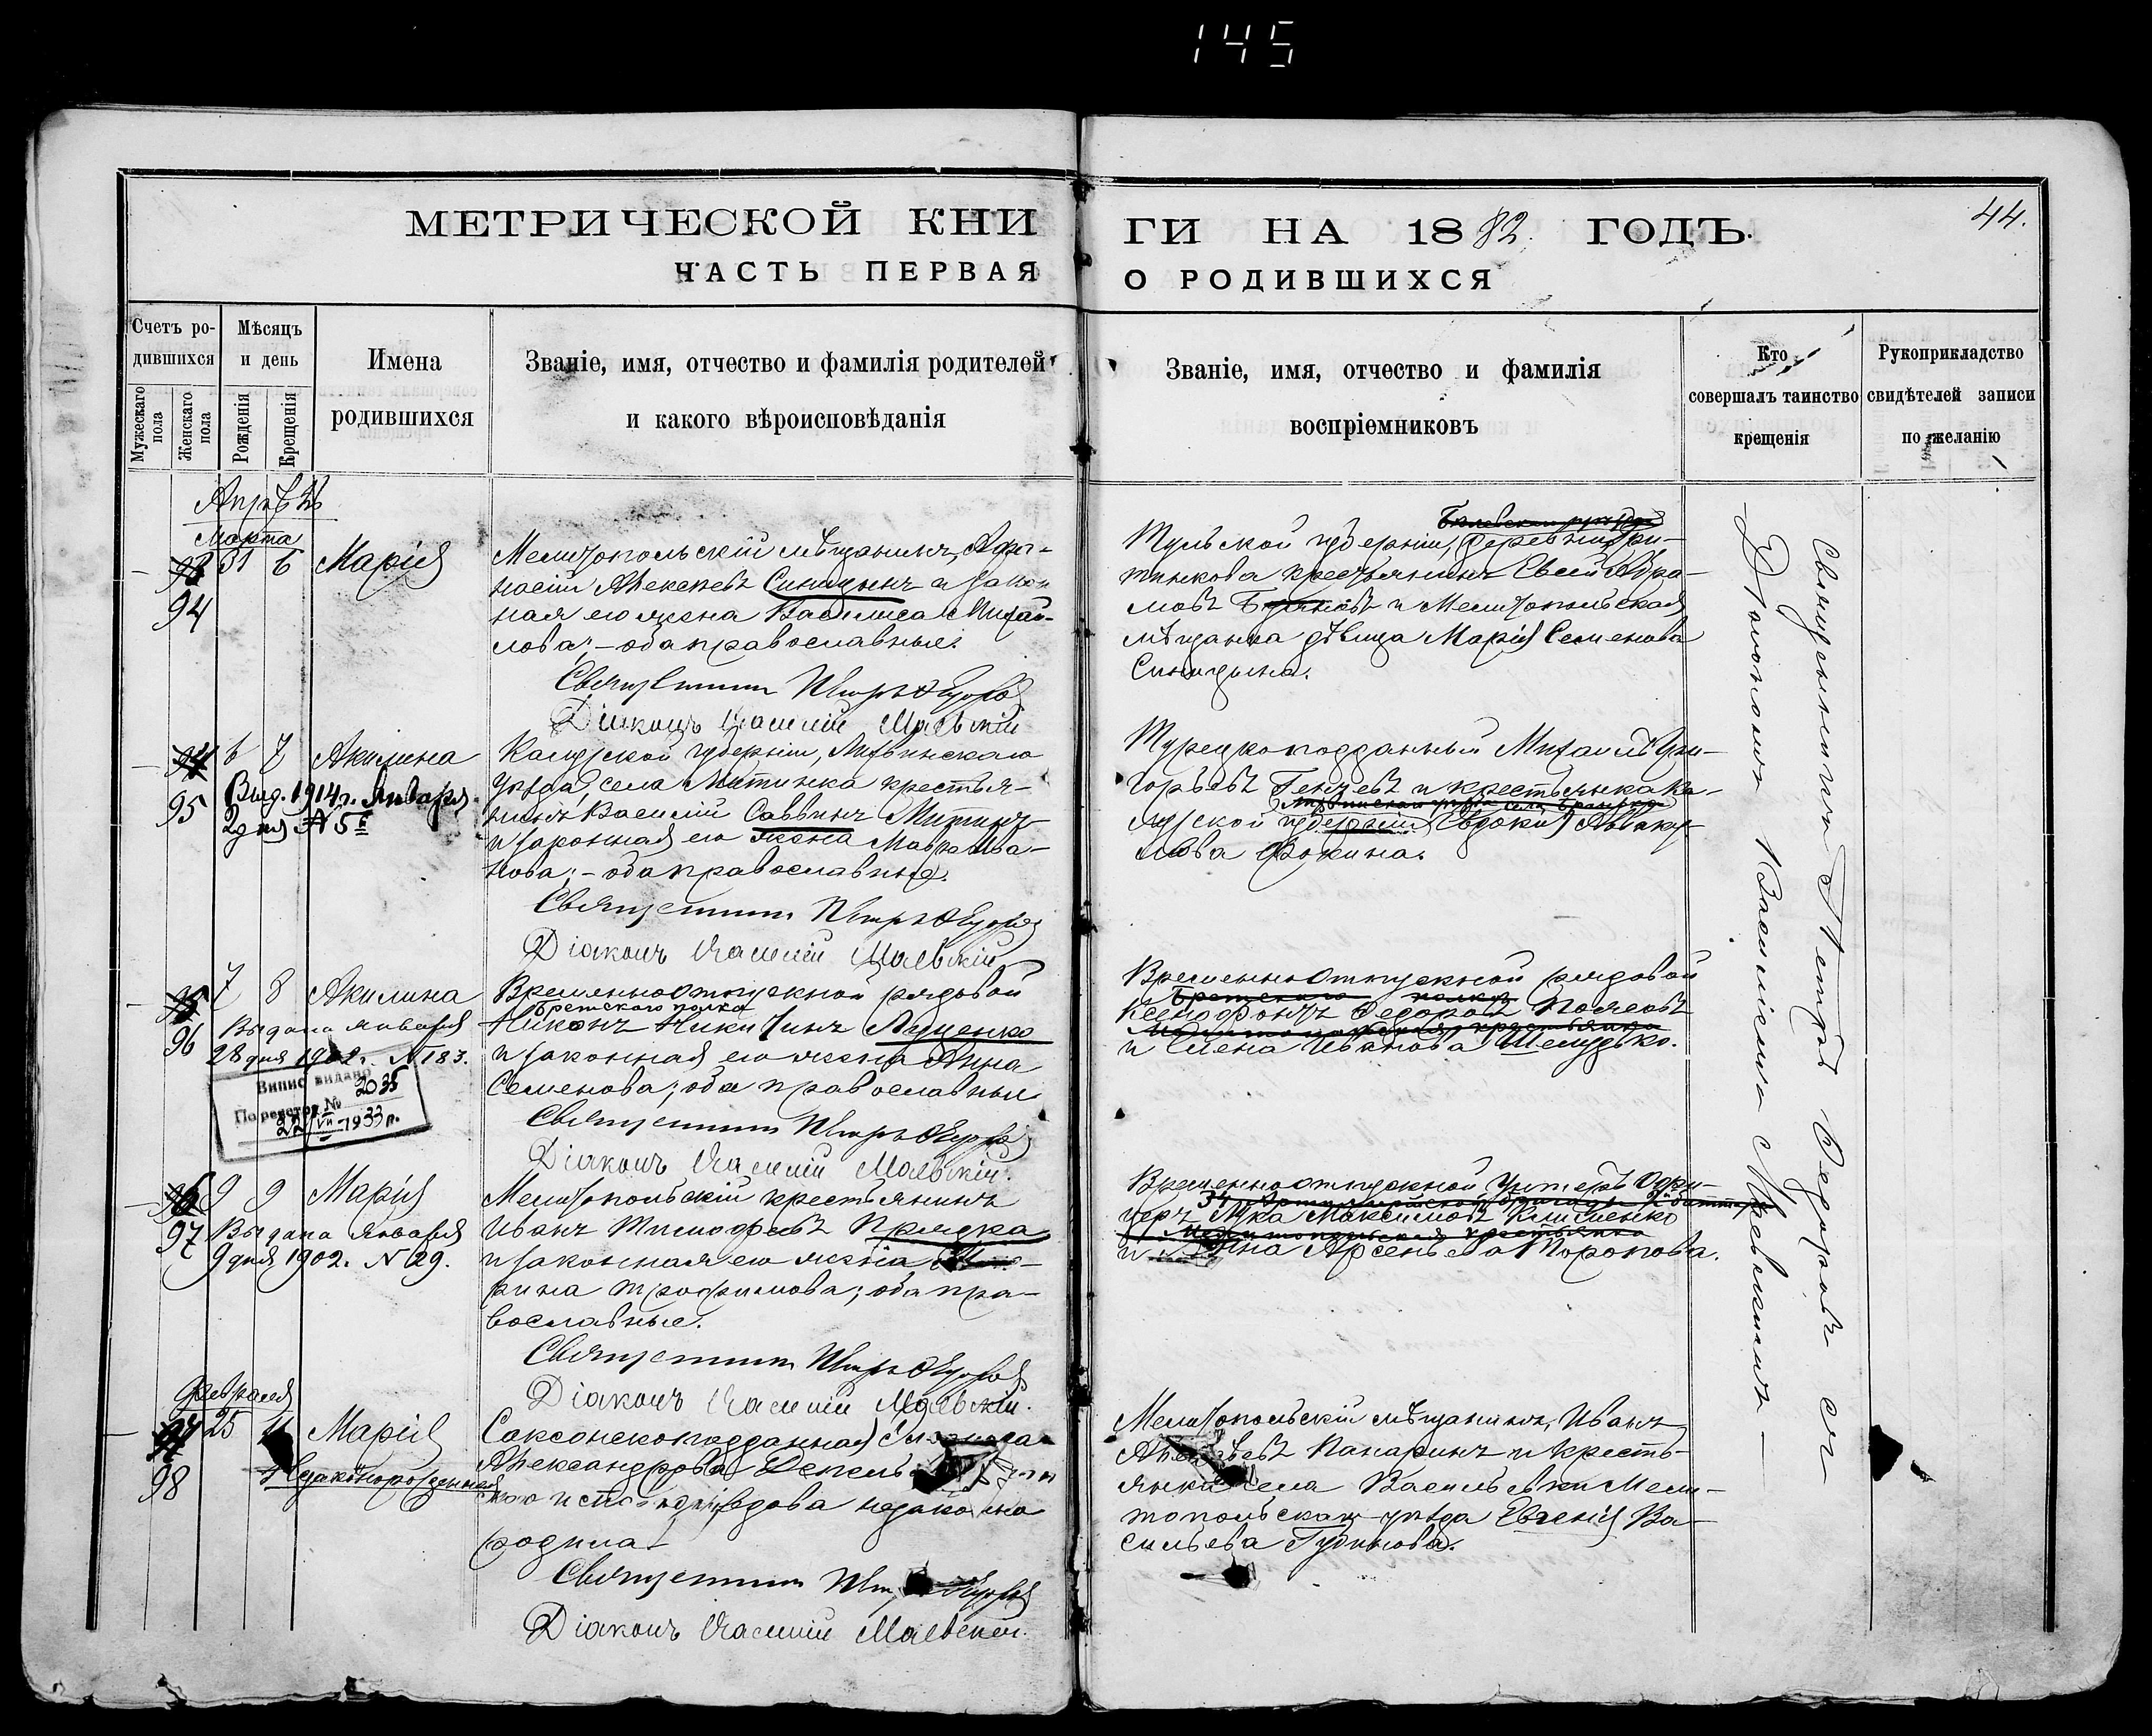 145
МЕТРИЧЕСКОЙ КНИ
ГИ НА 1882 ГОДЪ.
44.
ЧАСТЬ ПЕРВАЯ
О РОДИВШИХСЯ
Счетъ ро-
дившихся
Мужескаго
пола
Женскаго
пола
Мѣсяцъ
и день
Рожденія
Крещенія
Имена
родившихся
Званіе, имя, отчество и фамилія родителей
и какого вѣроисповѣданія
Званіе, имя, отчество и фамилія
воспріемниковъ
Кто
совершалъ таинство
крещенія
Рукоприкладство
свидѣтелей записи
по желанію
Апрѣль
Марта
93 31 6 Марія
94
Мелитопольскій мѣщанинъ, Афа-
насій Алексѣевъ Синицынъ и закон
ная его жена Василиса Михай-
лова; – оба православные.
Священникъ Петръ Ѳедоровъ
Діаконъ Василій Маевскій
Тульской губерніи, деревни
крестьянинъ Евсей Абра-
мовъ и Мелитопольская
мѣщанка дѣвица Марія Семенова
Синицына.
94 6 7 Акилина
95
Выд. 1914 г. Января
2 дня № 5
Калужской губерніи, Лихвинскаго
уѣзда, села Митинка крестья-
нинъ Василій Саввинъ Митинъ
и законная его жена Мавра Ива-
нова; – оба православные.
Священникъ Петръ Ѳедоровъ
Діаконъ Василій Маевскій
Турецкоподданный Михаилъ Гри-
горьевъ Генчевъ и крестьянка Ка-
лужской губерніи Евдокія Авваку-
мова Фокина.
95 7 8 Акилина
96
Выдана Января
28 дня 1902 г. № 183.
Випис видано
По реєстру № 2035
22/VII 1933 р.
Временноотпускной рядовой
Брестскаго полка
Никонъ Никитинъ Луценко
и законная его жена Анна
Семенова; оба православные
Священникъ Петръ Ѳедоровъ
Діаконъ Василій Маевскій.
Временноотпускной рядовой
Брестскаго полка
Ксенофонтъ Федоровъ
Мелитопольская крестьянка
и Елена Иванова Шелудько.
96 9 9 Марія
97
Выдана Января
9 дня 1902. № 29.
Мелитопольскій крестьянинъ
Иванъ Тимофеевъ Прядка
и законная его жена
рина Трофимова; оба пра-
вославные.
Священникъ Петръ Ѳедоровъ
Діаконъ Василій Маевскій.
Временноотпускной Унтеръ Офи-
церъ Лука Максимовъ Клименко
Мелитопольская крестьянка
и Арсеньева Торопова.
Февраля
97 25 Марія
98
Незаконнорожденная
Саксонскоподданная
Александрова
вдова незаконно
родила
Священникъ Петръ Ѳедоровъ
Діаконъ Василій Маевскій.
Мелитопольскій мѣщанинъ, Иванъ
Панаринъ и кресть-
янка села Васильевки Мели-
топольскаго уѣзда Евгенія Ва-
сильева Гудимова.
Священникъ Петръ Ѳедоровъ съ
Діакономъ Василіемъ Маевскимъ